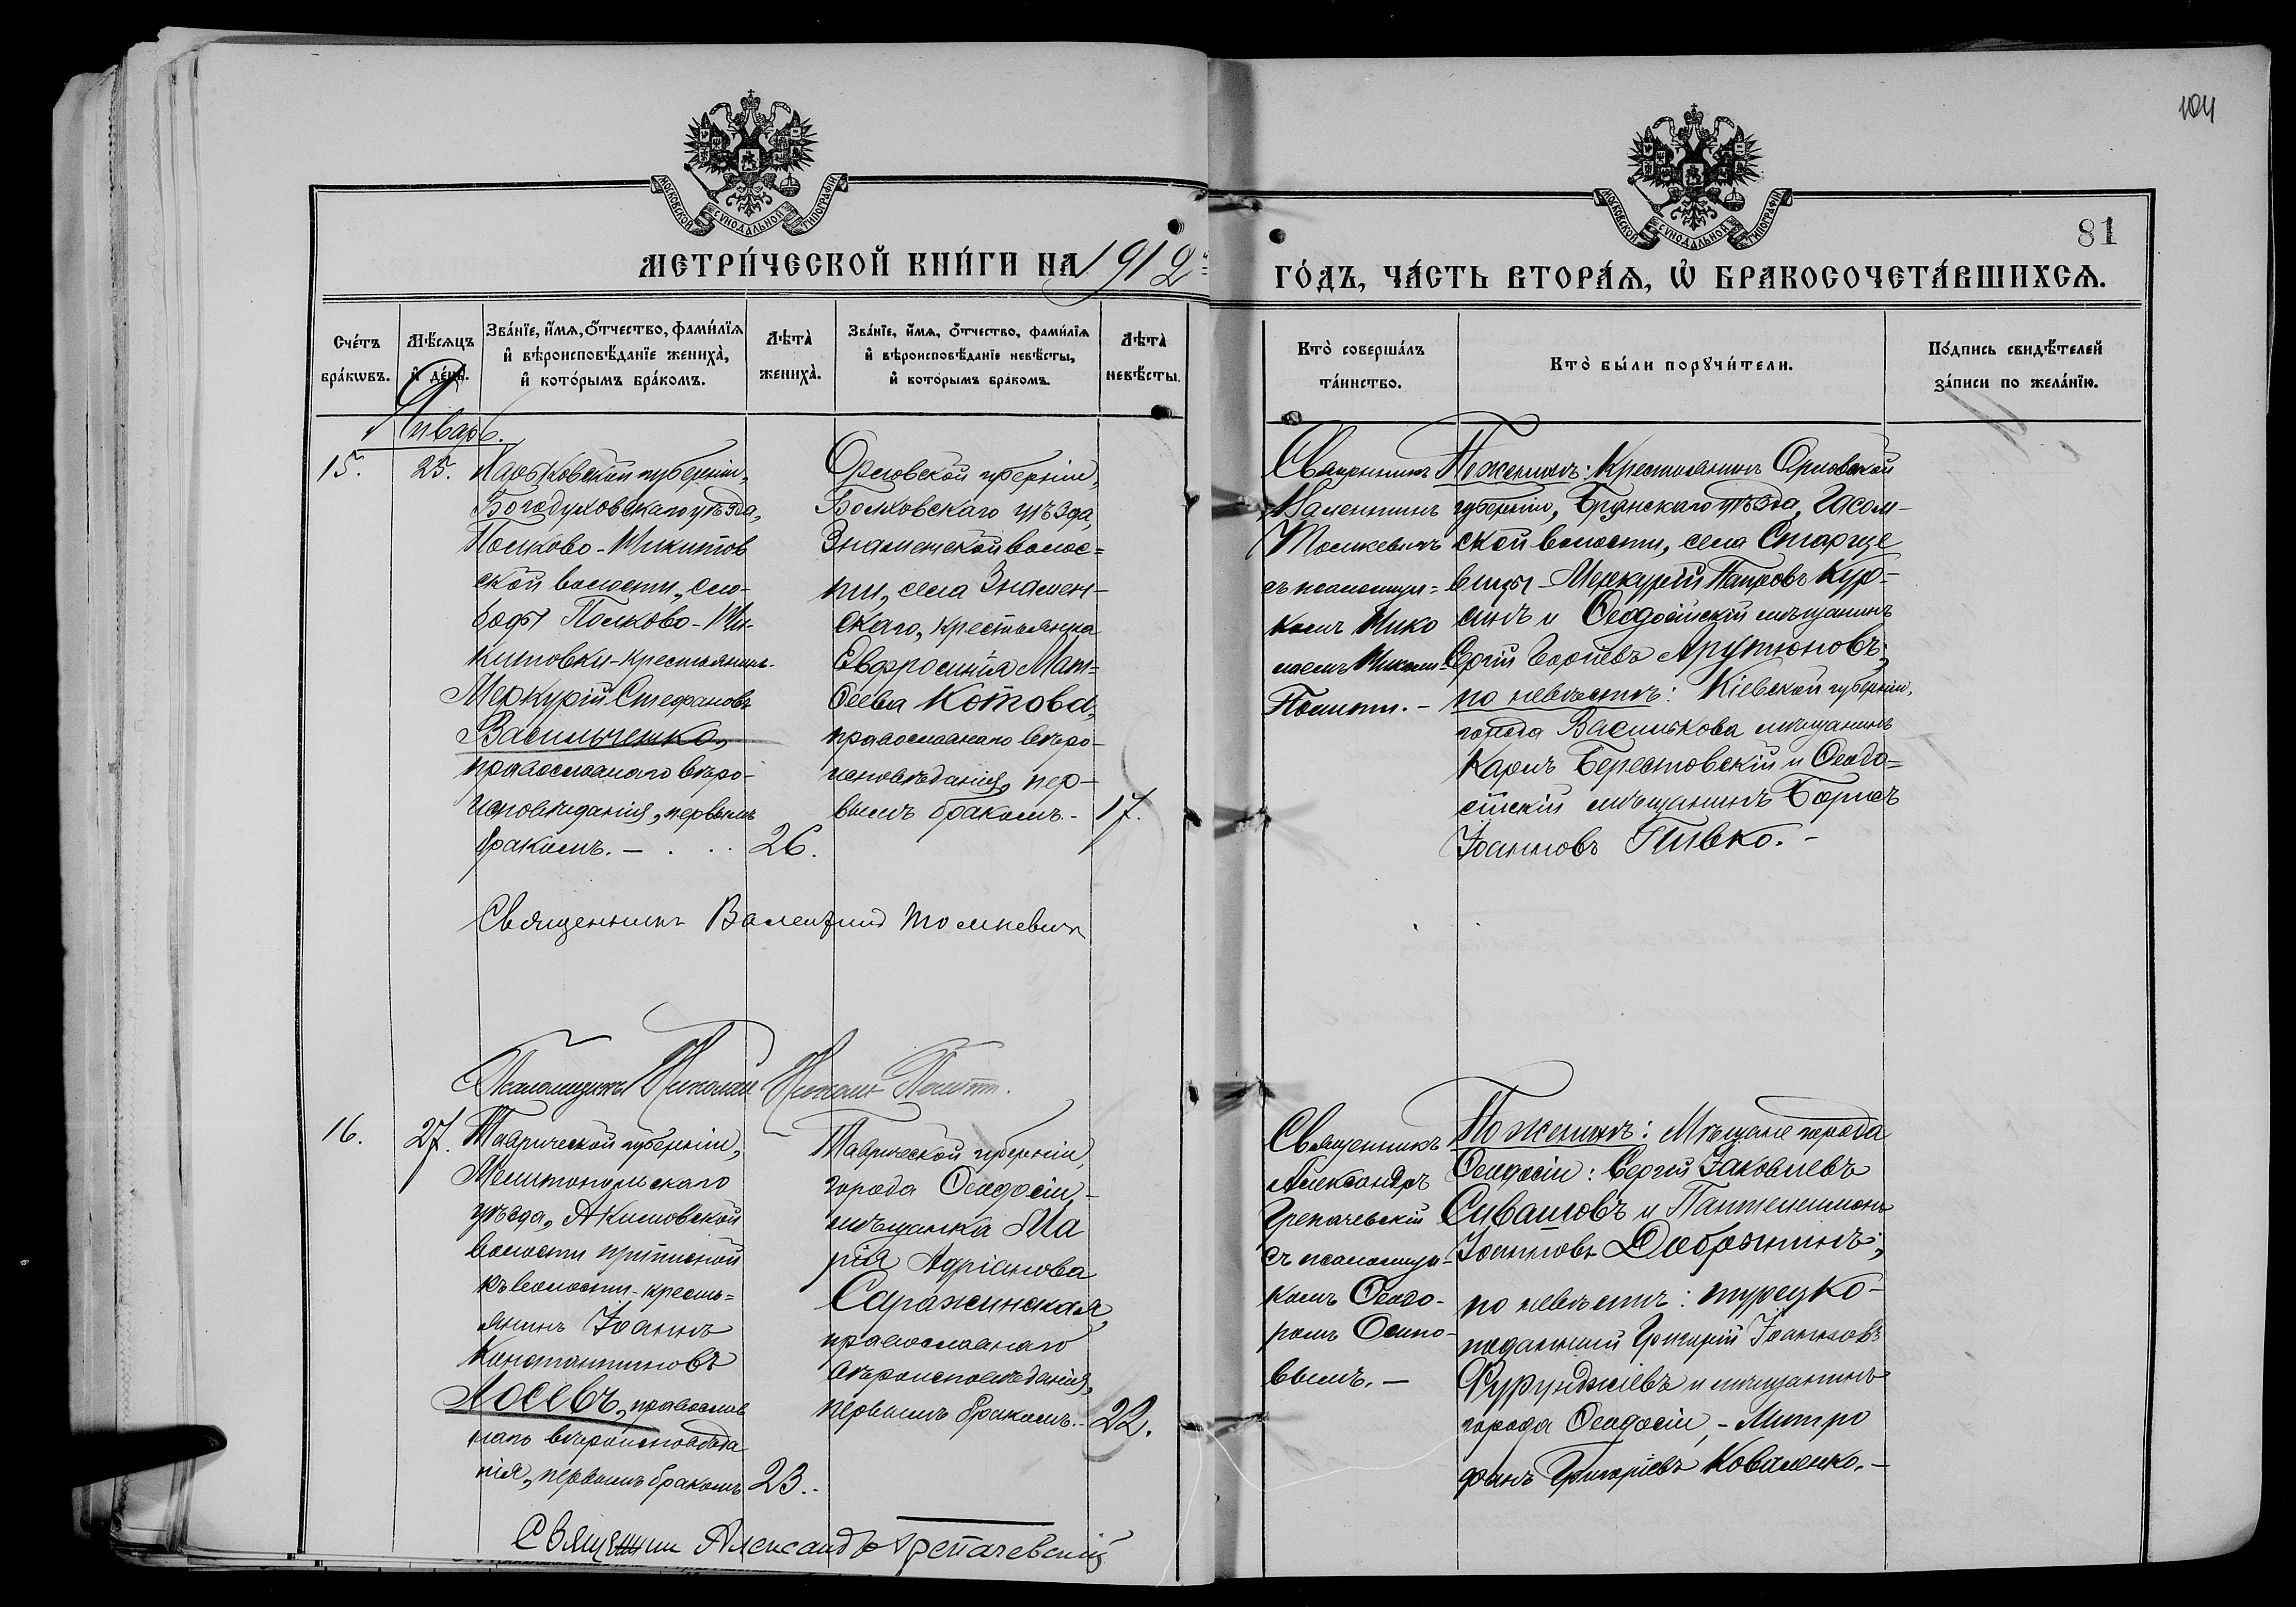 104
МОСКОВСКОЙ СѴНОДАЛЬНОЙ ТИПОГРАФІИ
МОСКОВСКОЙ СѴНОДАЛЬНОЙ ТИПОГРАФІИ
81
МЕТРИ́ЧЕСКОЙ КНИ́ГИ НА 1912й
ГО́ДЪ, ЧА́СТЬ ВТОРА́Ѧ, Ѡ҆ БРАКОСОЧЕТА́ВШИХСѦ.
Сче́тъ бра́кѡвъ.
Мѣ́сѧцъ и҆ де́нь.
Зва́нїе, и҆́мѧ, ѻ҆́тчество, фами́лїѧ
и҆ вѣроисповѣ́данїе жениха̀,
и҆ кото́рымъ бра́комъ.
Лѣта̀ жениха̀.
Зва́нїе, и҆́мѧ, ѻ҆́тчество, фами́лїѧ
и҆ вѣроисповѣ́данїе невѣ́сты,
и҆ кото́рымъ бра́комъ.
Лѣта̀ невѣ́сты.
Кто̀ соверша́лъ
та́инство.
Кто̀ бы́ли порꙋчи́тели.
По́дпись свидѣ́телей
за́писи по жела́нїю.
Январь.
15.
25.
Харьковской губерніи,
Богодуховскаго уѣзда,
Полково-Никитов
ской волости, сло-
боды Полково-Ни-
китовки-крестьянинъ
Меркурій Стефановъ
Васильченко,
православнаго вѣро-
исповѣданія, первымъ
бракомъ. —
26.
Орловской губерніи,
Болховскаго уѣзда,
Знаменской волос=
ти, села Знамен-
скаго, крестьянка
Евфросинія Мат-
ѳеева Котова,
православнаго вѣро-
исповѣданія, пер-
вымъ бракомъ. -
17.
Священникъ
Валентинъ
Томкевичъ
съ псаломщи=
комъ Нико
лаемъ
Политт. -
По женихѣ: Крестьянинъ Орловской
губерніи, Брянскаго уѣзда,
ской волости, села Старце
- Меркурій Кур-
синъ и Ѳеодосійскій мѣщанинъ
Сергій Арутюновъ;
по невѣстѣ: Кіевской губерніи,
города Василькова мѣщанинъ
Карпъ Берестовскій и Ѳеодо=
сійскій мѣщанинъ Борисъ
Іоанновъ Пивко. -
Священникъ Валентинъ Томкевичъ
Псаломщикъ Николай Политт.
16.
27.
Таврической губерніи,
Мелитопольскаго
уѣзда, Акимовской
волости приписной
къ волости-кресть=
янинъ Іоаннъ
Константиновъ
Лосевъ, православ
наго вѣроисповѣда
нія, первымъ бракомъ
23.
Таврической губерніи,
города Ѳеодосіи, -
мѣщанка Ма
рія Адріанова
Саражинская,
православнаго
вѣроисповѣданія,
первымъ бракомъ. -
22.
Священникъ
Александръ
Трепачевскій
съ псаломщи-
комъ Ѳеодо-
ромъ Осипо-
вымъ. —
По женихѣ: Мѣщане города
Ѳеодосіи: Сергій Іаковлевъ
Сивашовъ и Пантелеимонъ
Іоанновъ Добрянинъ;
по невѣстѣ: турецко-
подданный Григорій Іоанновъ
Фурунджіевъ и мѣщанинъ
города Ѳеодосіи, - Митро
фанъ Григоріевъ Коваленко. -
Священникъ Александръ Трепачевскій